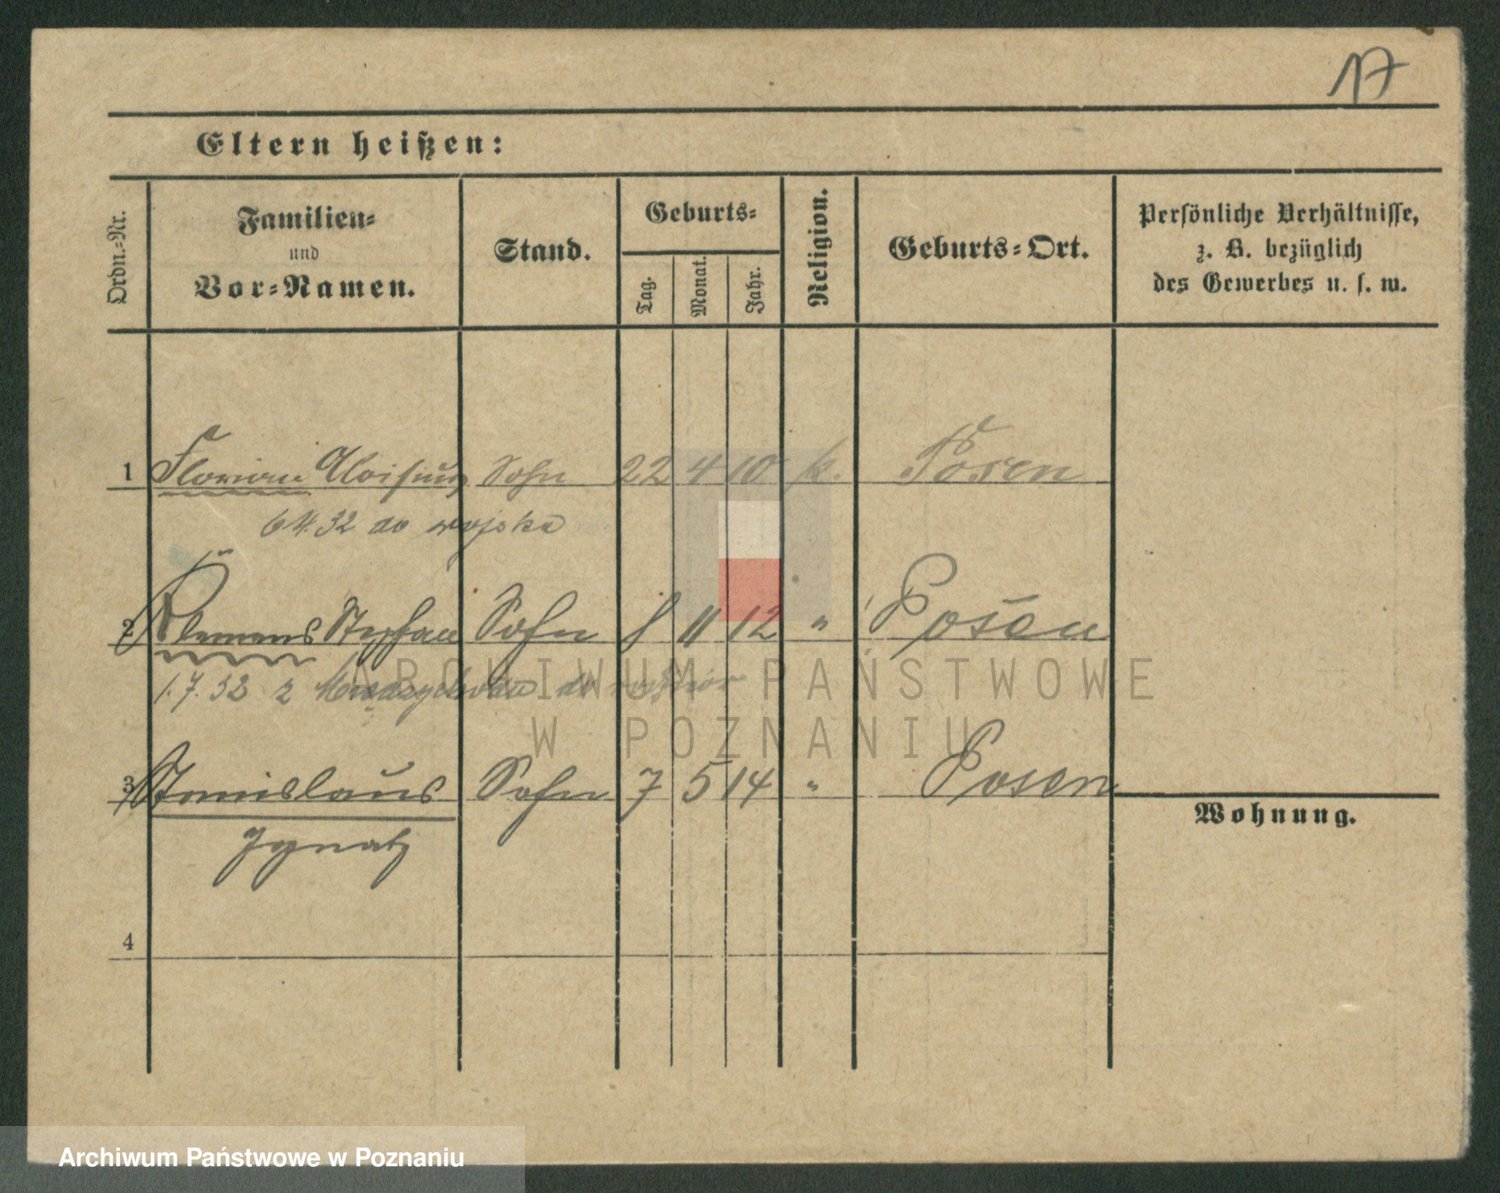 17
Eltern heißen:
Ordn.-Nr.
Familien-
und
Vor-Namen.
Stand.
Geburts-
Tag.
Monat.
Jahr.
Religion.
Geburts-Ort.
Persönliche Verhältnisse,
z. B. bezüglich
des Gewerbes u. s. w.
1 Florian Aloisius Sohn 22 4 10 k. Posen
6 4. 32 do wojska
2 Klemens Stephan Sohn 8 11 12 " Posen
1.7.32 z do
ARCHIWUM PAŃSTWOWE
W POZNANIU
3 Stanislaus Sohn 7 5 14 " Posen
Wohnung.
Ignatz
4
Archiwum Państwowe w Poznaniu